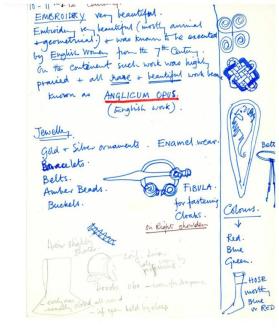 10-11
EMBROIDERY very beautiful.
Embroidery very beautiful (mostly animal
+ geometrical) + was known to be executed
by English Women from the 7th Century.
On the continent such work was highly
praised + all rare + beautiful work became
known as ANGLICUM OPUS.
(English work).
Jewellery
Gold + Silver ornaments. Enamel wear.
Bracelets.
Belts.
Amber Beads.
Buckels.
FIBULA.
for fastening
Cloaks.
on Right shoulder
Belt
Colours.
Red.
Blue
Green.
HOSE
mostly
Blue
or RED
Hair slightly
shorter